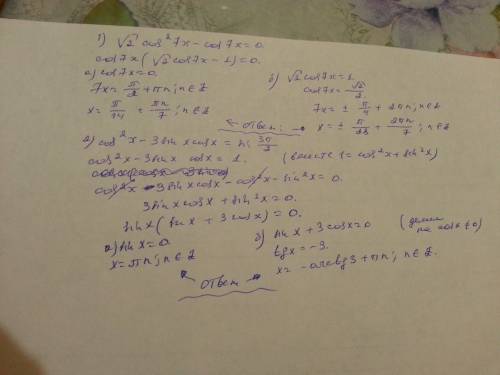 1) √2 cos²7x - cos7x = 0.
cos7x(√2 cos7x - 1) = 0.
а) cos7x = 0.
7x = π/2 + πn; n∈Z
x = π/14 + πn/7; n∈Z
б) √2 cos7x = 1
cos7x = √2/2
7x = ± π/4 + 2πn; n∈Z
x = ± π/28 + 2πn/7; n∈Z
ответ:
2) cos²x - 3sinx cosx = 3π/2
cos²x - 3sinx cosx = 1. (вместо 1 = cos²x + sin²x)
cos²x - 3sinx cosx - cos²x - sin²x = 0.
3sinx cosx + sin²x = 0.
sinx(sinx + 3cosx) = 0.
а) sinx = 0.
x = πn; n∈Z
б) sinx + 3cosx = 0 (делим на cosx ≠ 0)
tgx = -3.
x = -arctg3 + πn; n∈Z.
ответ